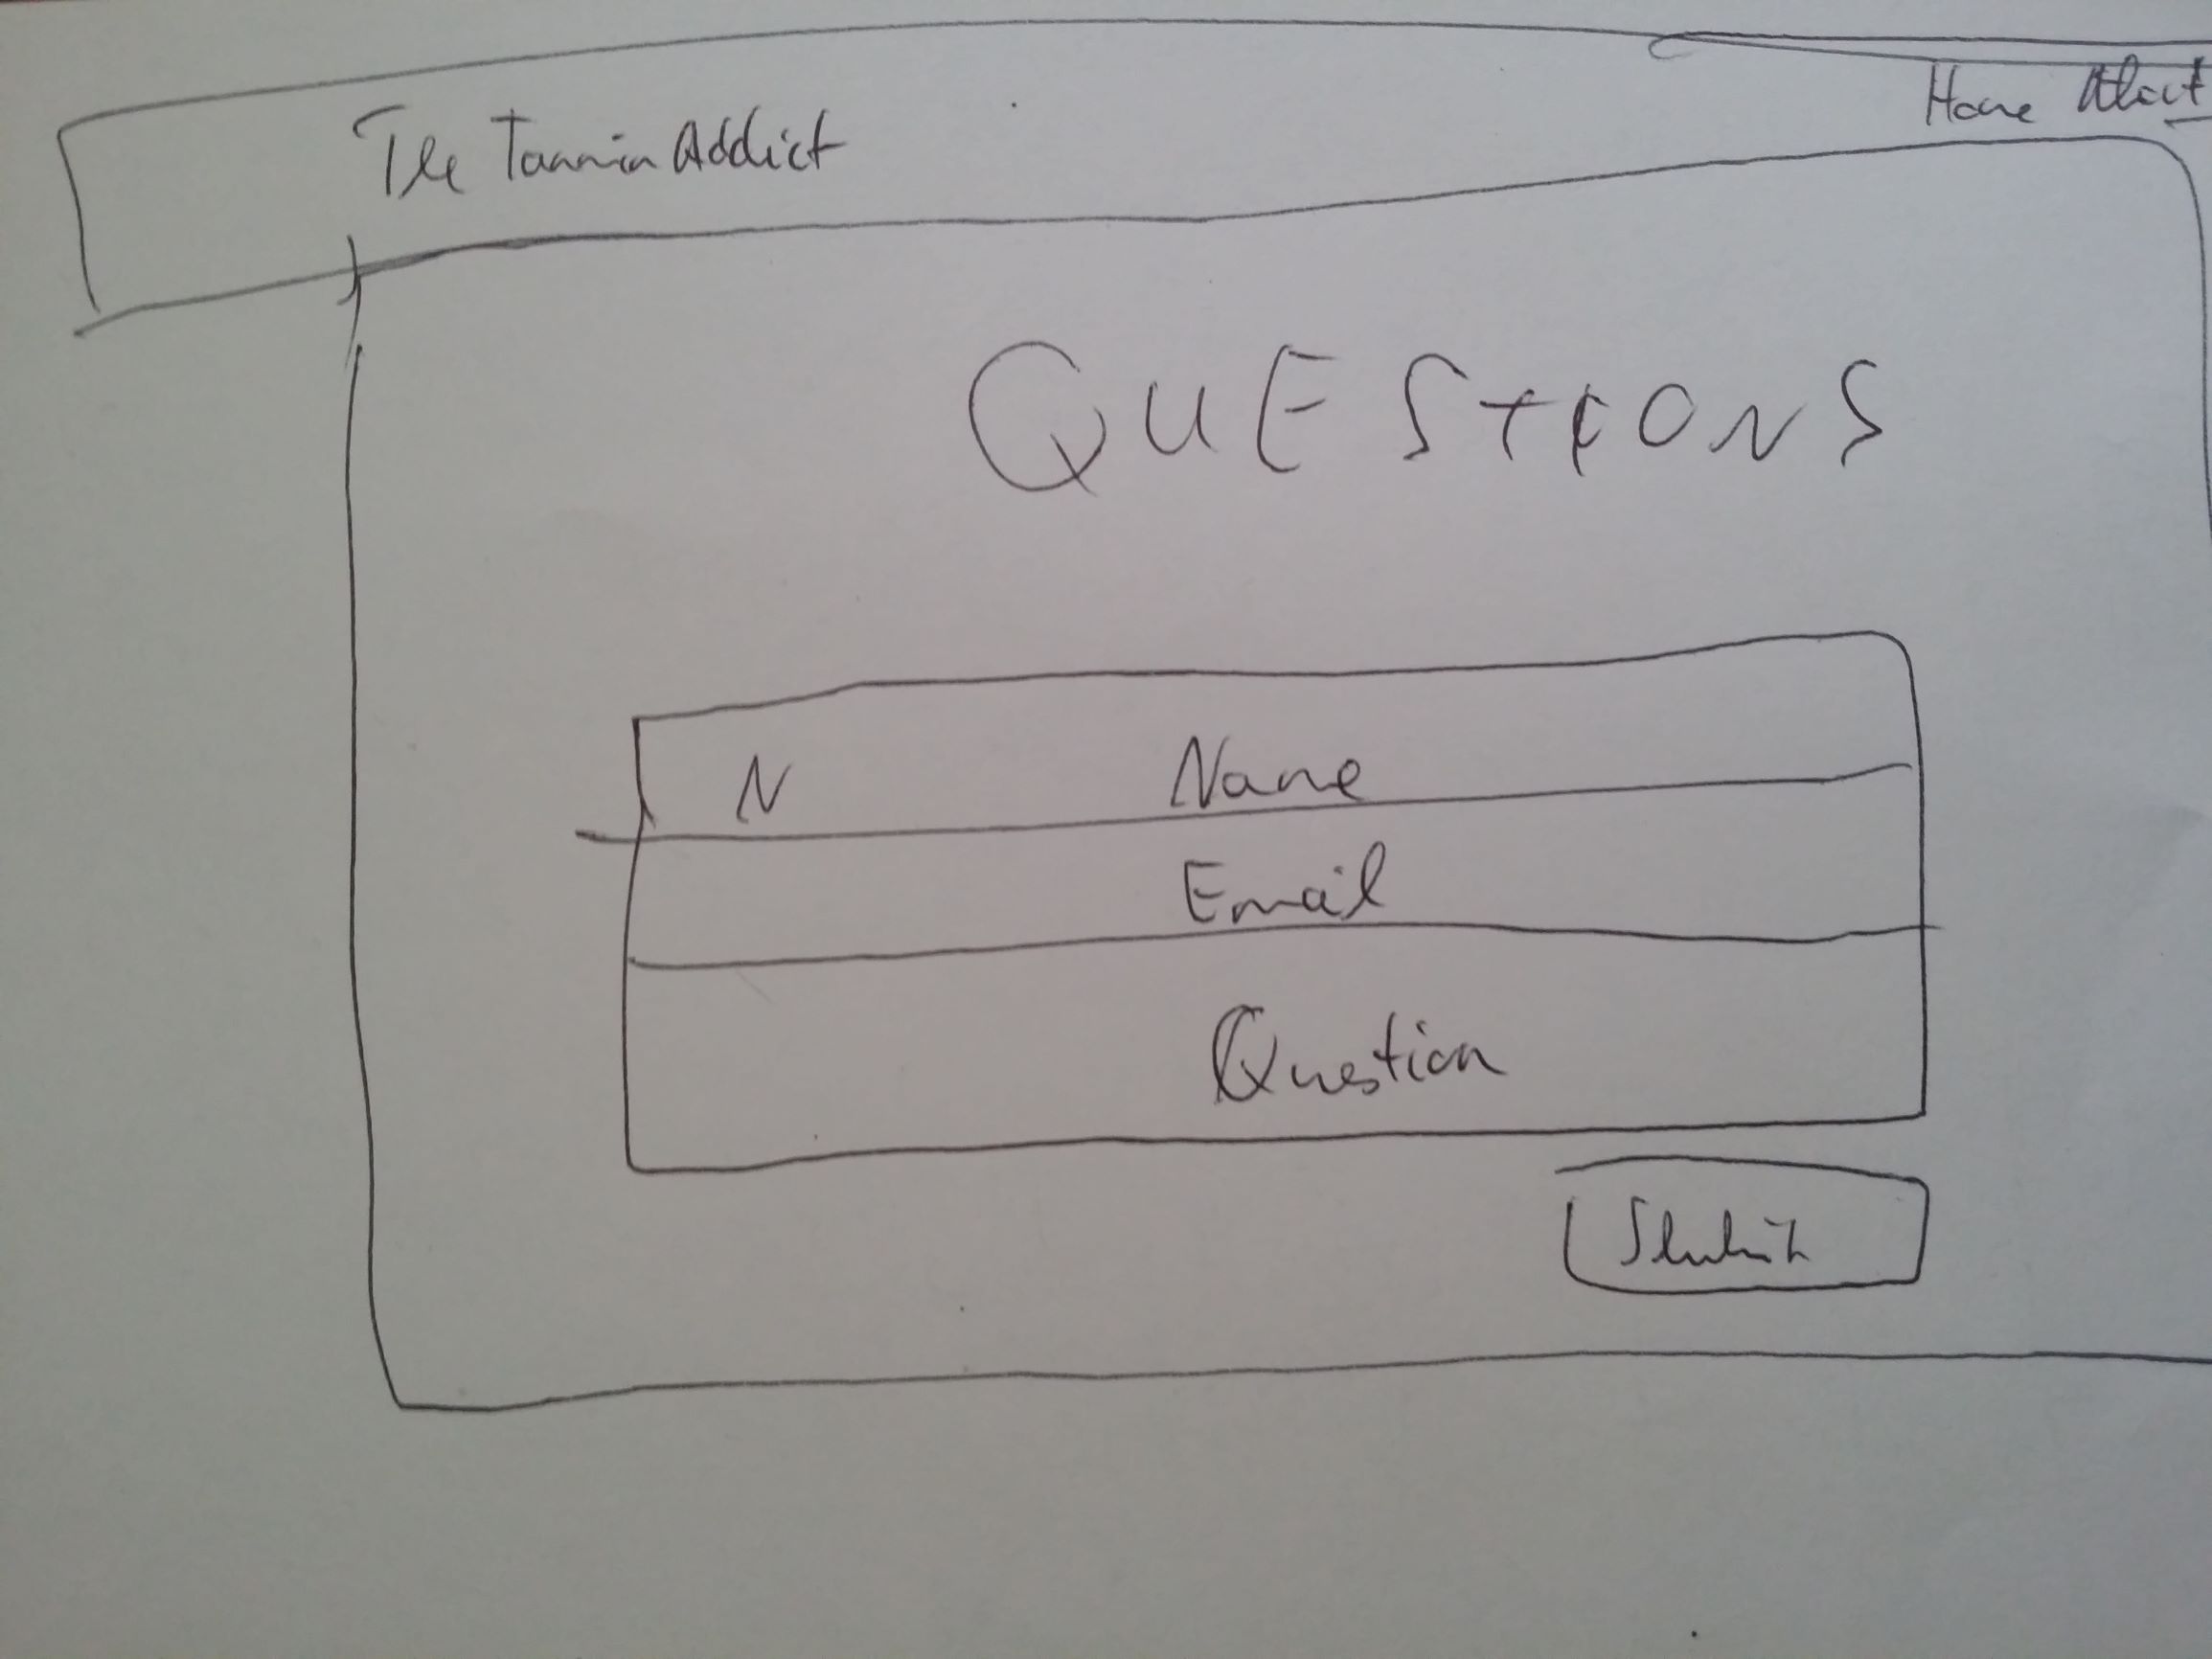 The Tannin Addict
Home About
QUESTIONS
N Name
Email
Question
Submit